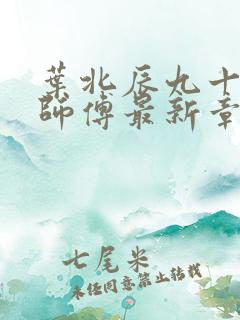 葉北辰九十
師傅最新章
七尾米
未经同意禁止转载